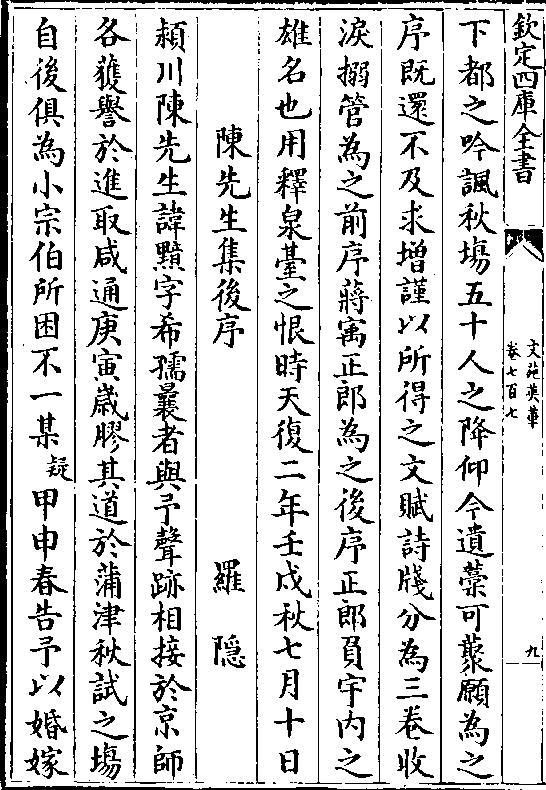 欽定四庫全書
文苑英華
卷七百七
九
下都之吟諷秋場五十人之降仰今遺藁可聚願為之
序既還不及求增謹以所得之文賦詩牋分為三卷收
淚搦管為之前序蔣寓正郎為之後序正郎負宇内之
雄名也用釋泉臺之恨時天復二年壬戌秋七月十日
陳先生集後序
羅隠
潁川陳先生諱黯字希孺曩者與予聲跡相接於京師
各獲譽於進取咸通庚寅歲膠其道於蒲津秋試之塲
自後俱為小宗伯所困不一某疑甲申春告予以婚嫁